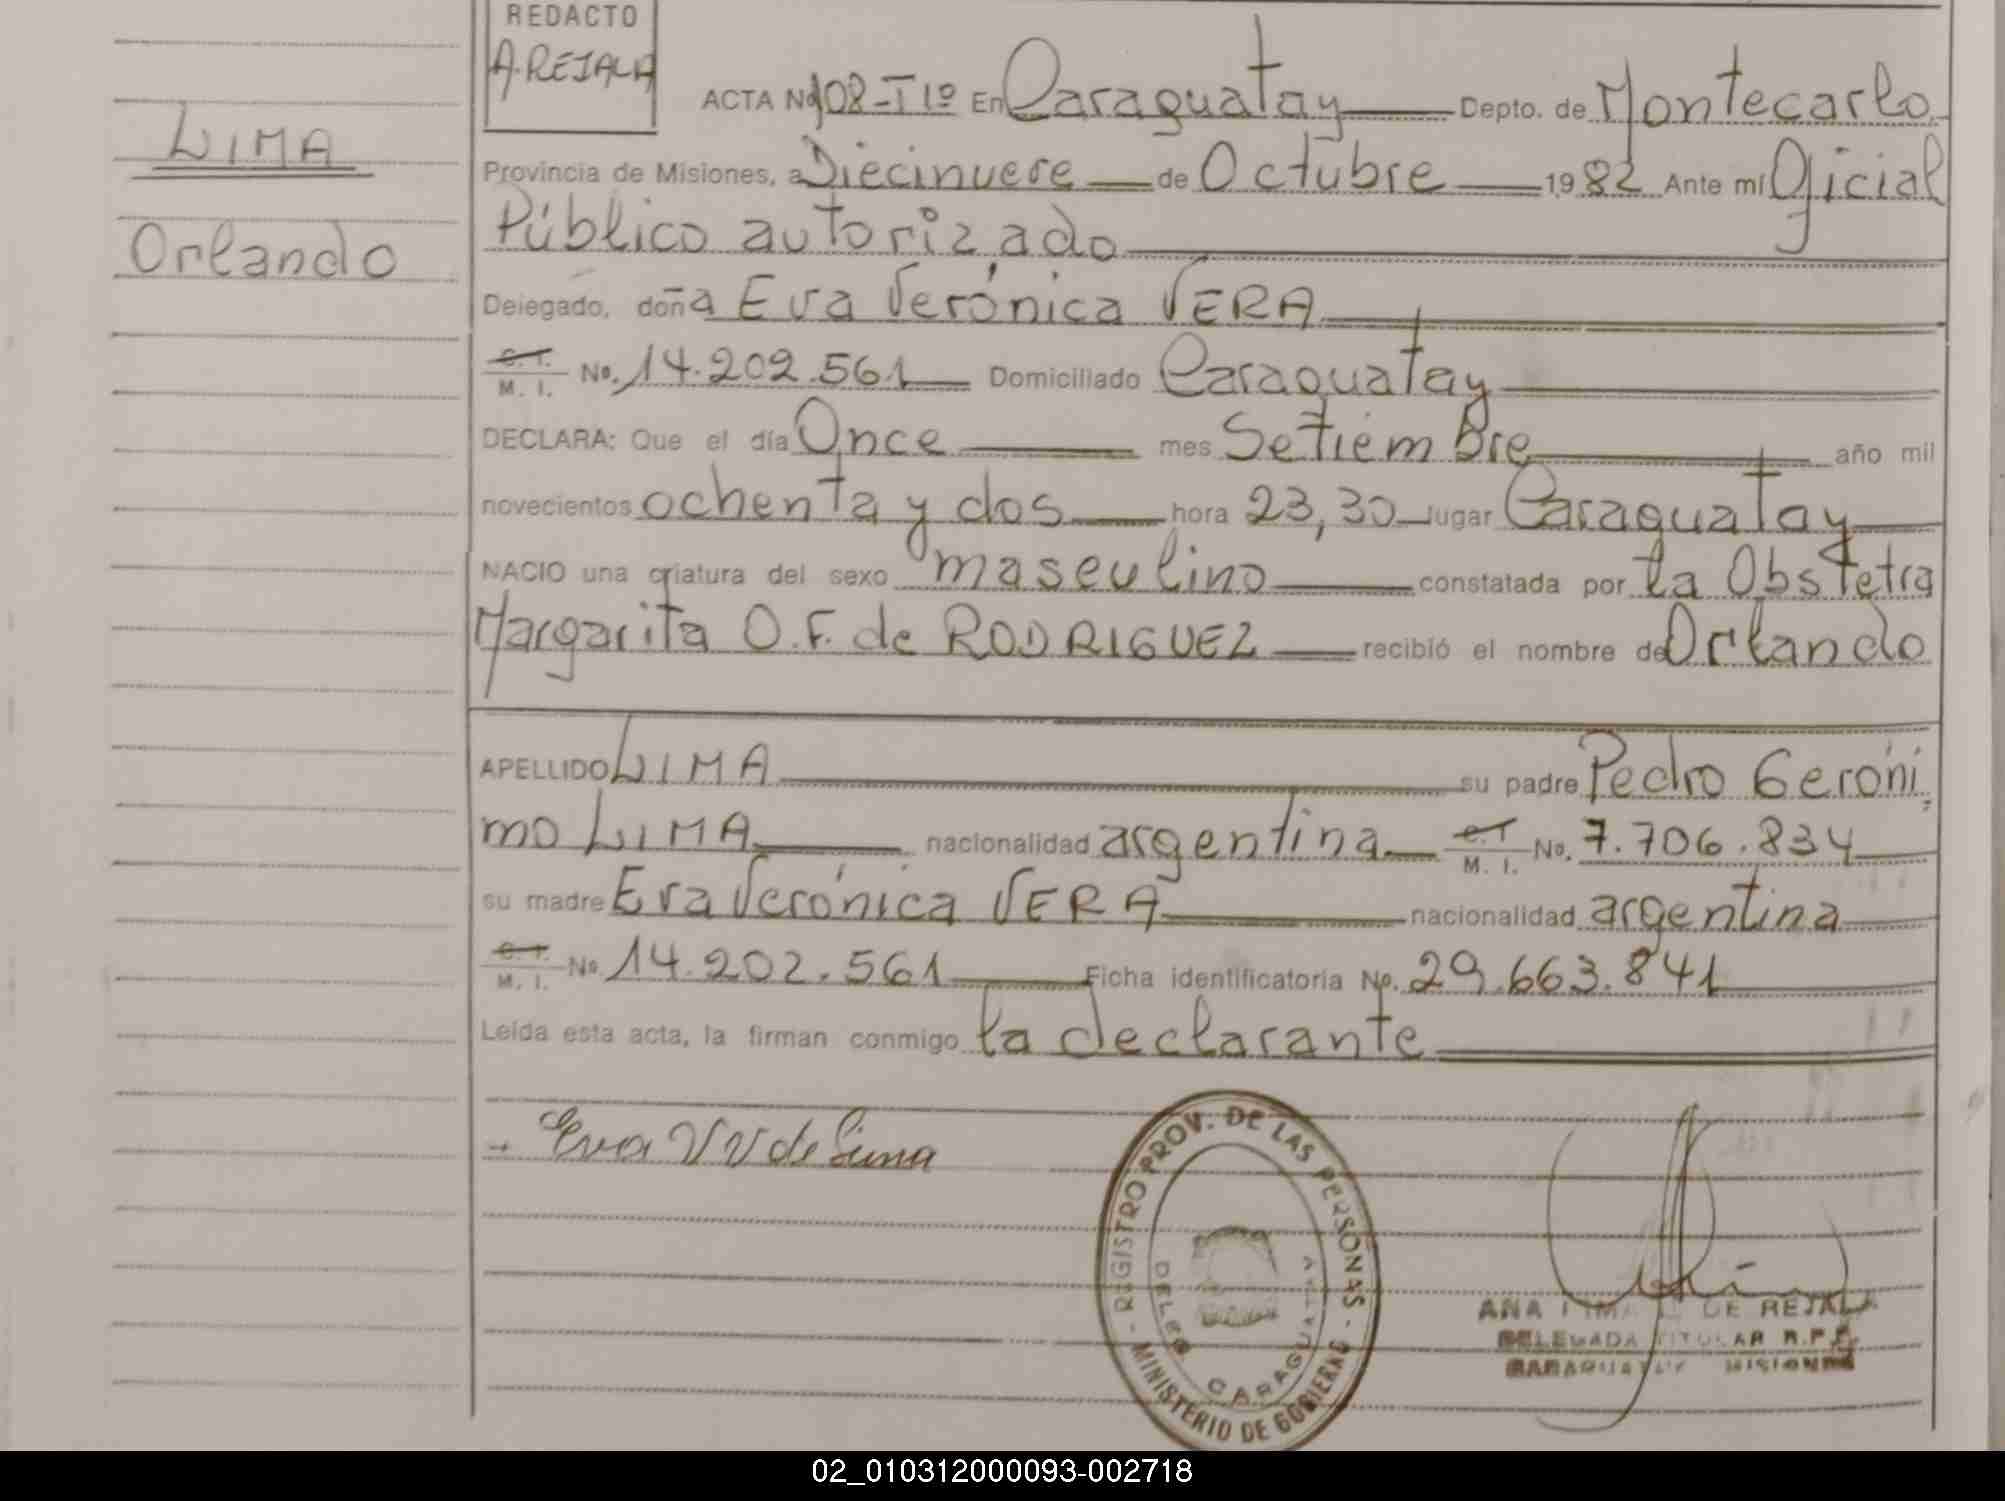 REDACTO
A. REJALA
LIMA
Orlando
ACTA Nº 108-Tº1º En Caraguatay Depto. de Montecarlo
Provincia de Misiones, a Diecinueve de Octubre 1982 Ante mí Oficial
Público autorizado
Delegado, doña Eva Verónica VERA
C. I. M. I. No. 14.202.561 Domiciliado Caraguatay
DECLARA: Que el día Once mes Setiembre año mil
novecientos ochenta y dos hora 23,30 lugar Caraguatay
NACIO una criatura del sexo masculino constatada por la Obstetra
Margarita O. F. de RODRIGUEZ recibió el nombre de Orlando
APELLIDO LIMA su padre Pedro Geróni
mo LIMA nacionalidad argentina C. I. M. I. No. 7.706.834
su madre Eva Verónica VERA nacionalidad argentina
C. I. M. I. No 14.202.561 Ficha identificatoria No. 29.663.841
Leída esta acta, la firman conmigo la declarante
Eva V V de Lima
REGISTRO PROV. DE LAS PERSONAS - MINISTERIO DE GOBIERNO
DELEG. CARAGUATAY
ANA DE REJALA
DELEGADA TITULAR R.P.P.
CARAGUATAY MISIONES
02_010312000093-002718